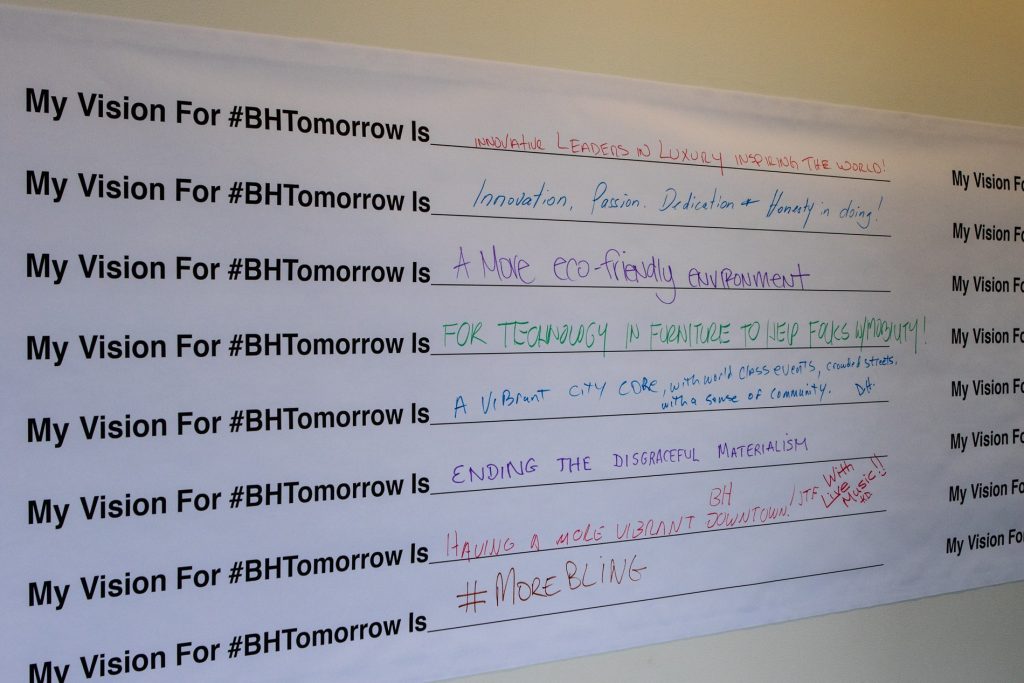 My Vision For #BHTomorrow Is INNOVATIVE LEADERS IN LUXURY INSPIRING THE WORLD!
My Vision For #BHTomorrow Is Innovation, Passion. Dedication + Honesty in doing!
My Vision For #BHTomorrow Is A More eco-friendly ENVIRONMENT
My Vision For #BHTomorrow Is FOR TECHNOLOGY IN FURNITURE TO HELP FOLKS W/MOBILITY!
My Vision For #BHTomorrow Is A VIBrant CITY CORE, with world class events, crowded streets,
with a sense of community. DH.
My Vision For #BHTomorrow Is ENDING THE DISGRACEFUL MATERIALISM
My Vision For #BHTomorrow Is HAVING A MORE VIBRANT BH DOWNTOWN! /JTF With
Live
Music!!
My Vision For #BHTomorrow Is #MOREBLING
My Vision Fo
My Vision Fo
My Vision Fo
My Vision Fo
My Vision Fo
My Vision Fo
My Vision Fo
My Vision Fo